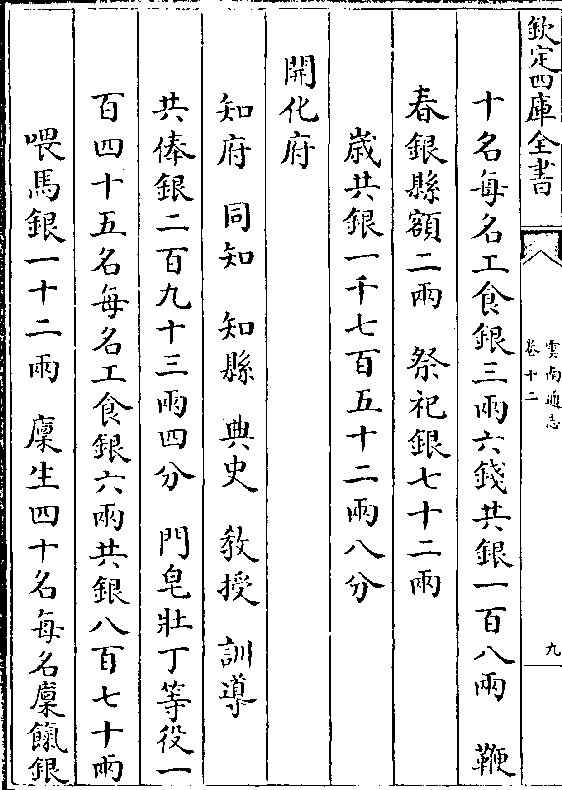 欽定四庫全書
雲南通志
卷十二
九
十名每名工食銀三兩六錢共銀一百八兩　鞭
春銀縣額二兩　祭祀銀七十二兩
歳共銀一千七百五十二兩八分
開化府
知府　同知　知縣　典史　教授　訓導
共俸銀二百九十三兩四分　門皂壯丁等役一
百四十五名每名工食銀六兩共銀八百七十兩
喂馬銀一十二兩　廩生四十名每名廩餼銀